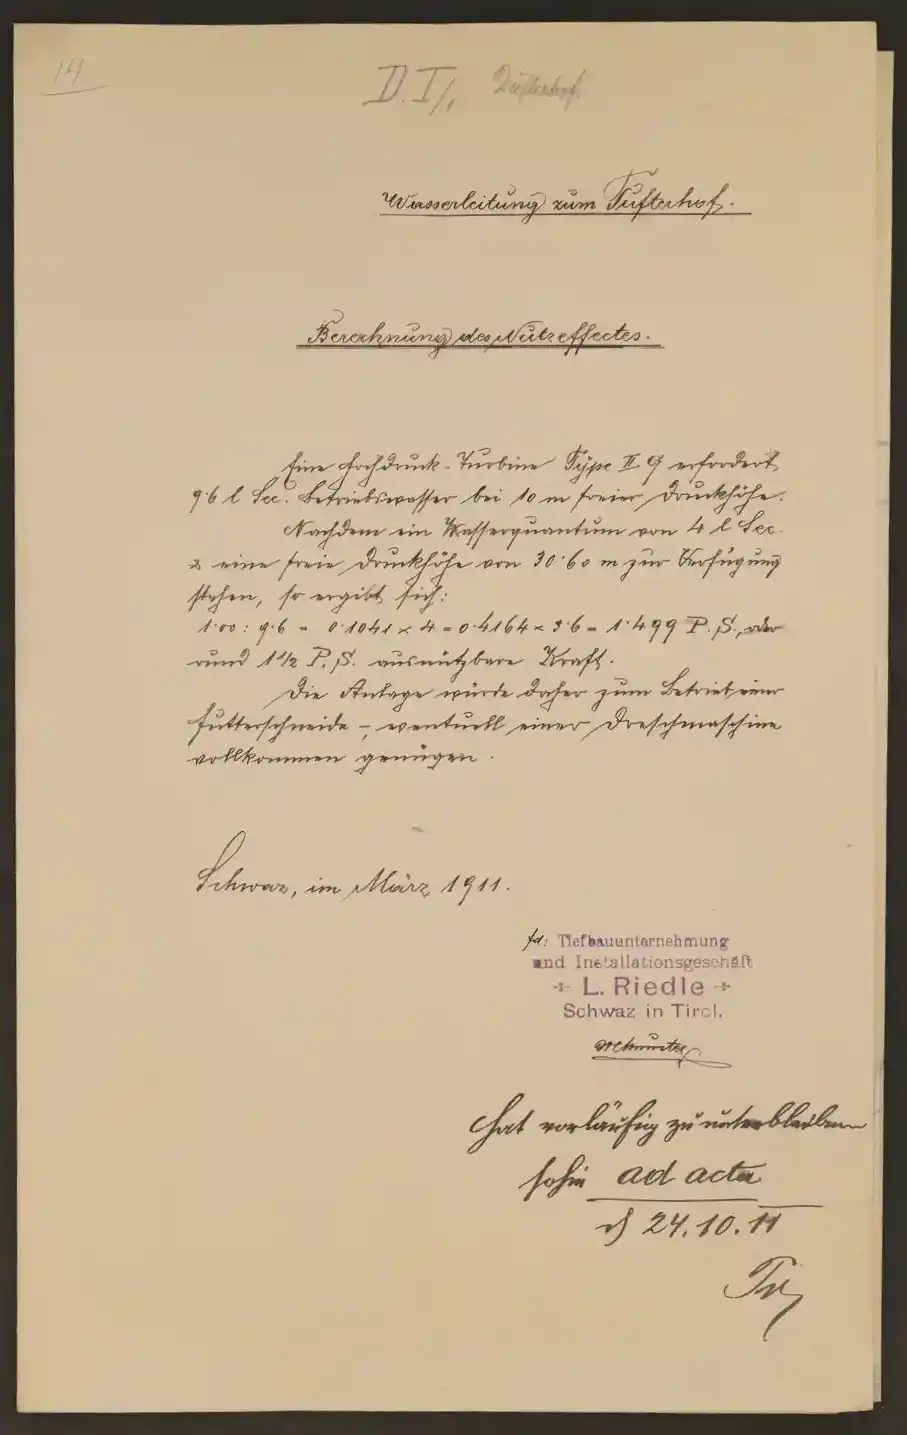 14
D. I/1 Tufterhof.
Wasserleitung zum Tufterhof.
Berechnung des Nutzeffectes.
Eine Hochdruck-Turbine Type II G erfordert
9·6 l Sec. Betriebswasser bei 10 m freier Druckhöhe.
Nachdem ein Wasserquantum von 4 l Sec.
& eine freie Druckhöhe von 30·60 m zur Verfügung
stehen, so ergibt sich:
1·00 : 9·6 = 0·1041 × 4 = 0·4164 × 3·6 = 1·499 P. S., oder
rund 1 1/2 P. S. ausnützbare Kraft.
Die Anlage würde daher zum Betrieb einer
Futterschneide -, eventuell einer Dreschmaschine
vollkommen genügen.
Schwaz, im März 1911.
Tiefbauunternehmung
und Installationsgeschäft
L. Riedle
Schwaz in Tirol.
hat vorläufig zu unterbleiben
sohin ad acta
24.10.11